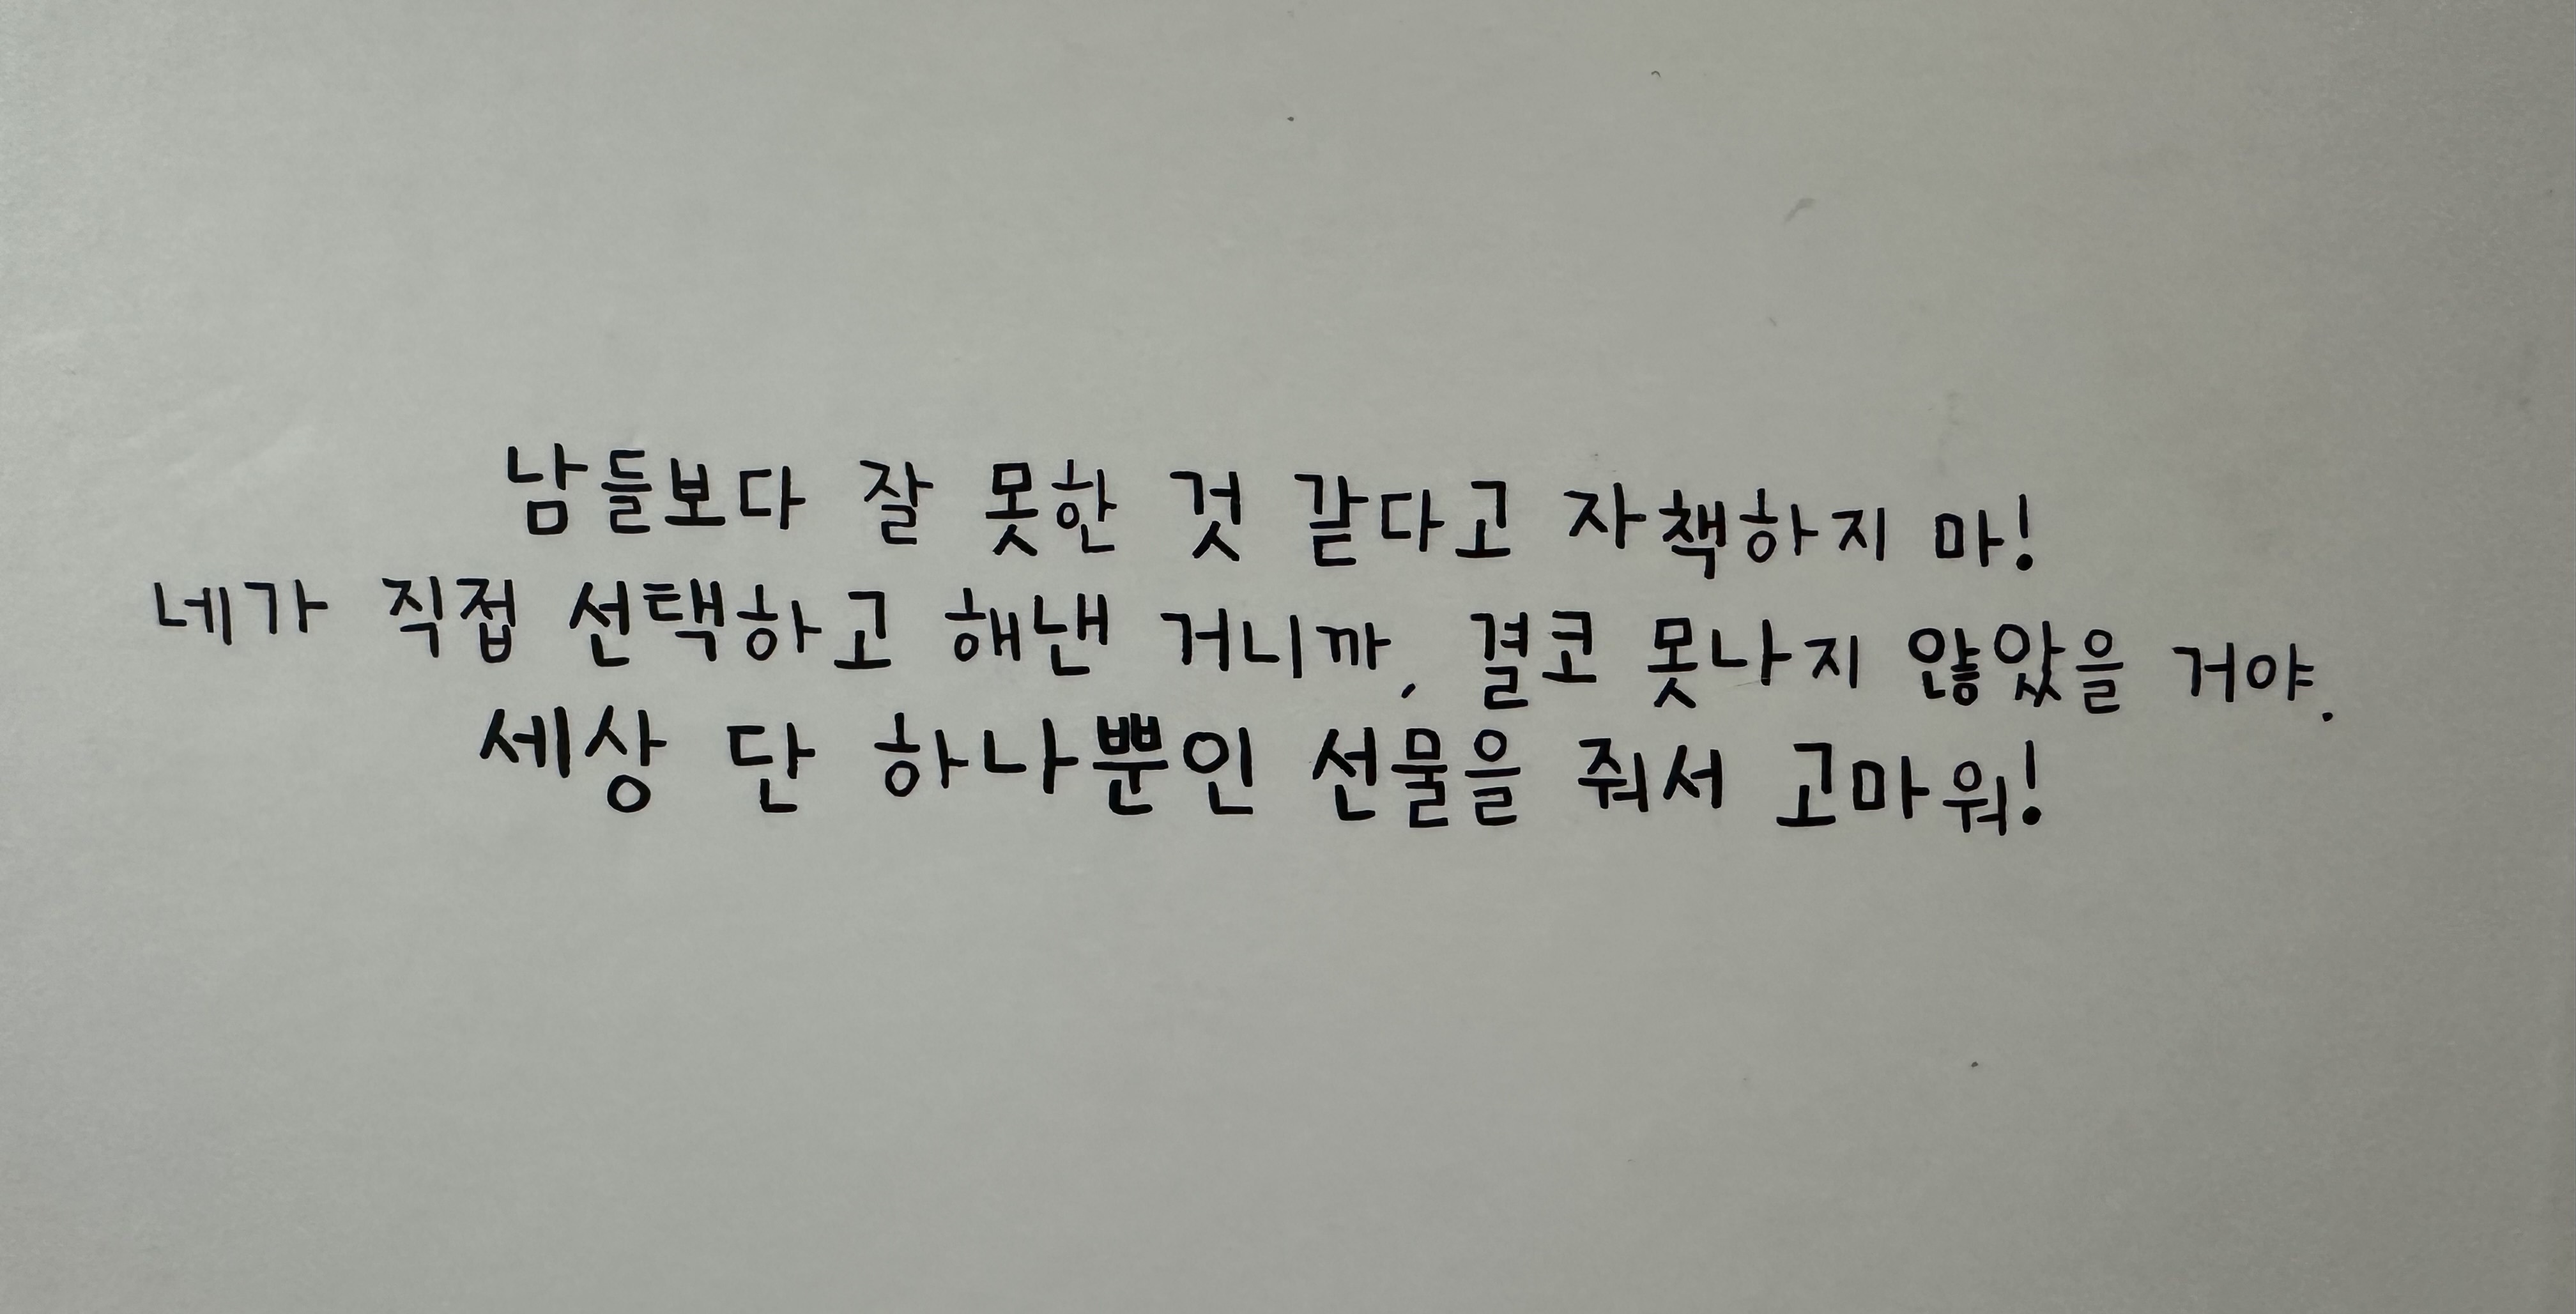 남들보다 잘 못한 것 같다고 자책하지 마!
네가 직접 선택하고 해낸 거니까, 결코 못나지 않았을 거야.
세상 단 하나뿐인 선물을 줘서 고마워!